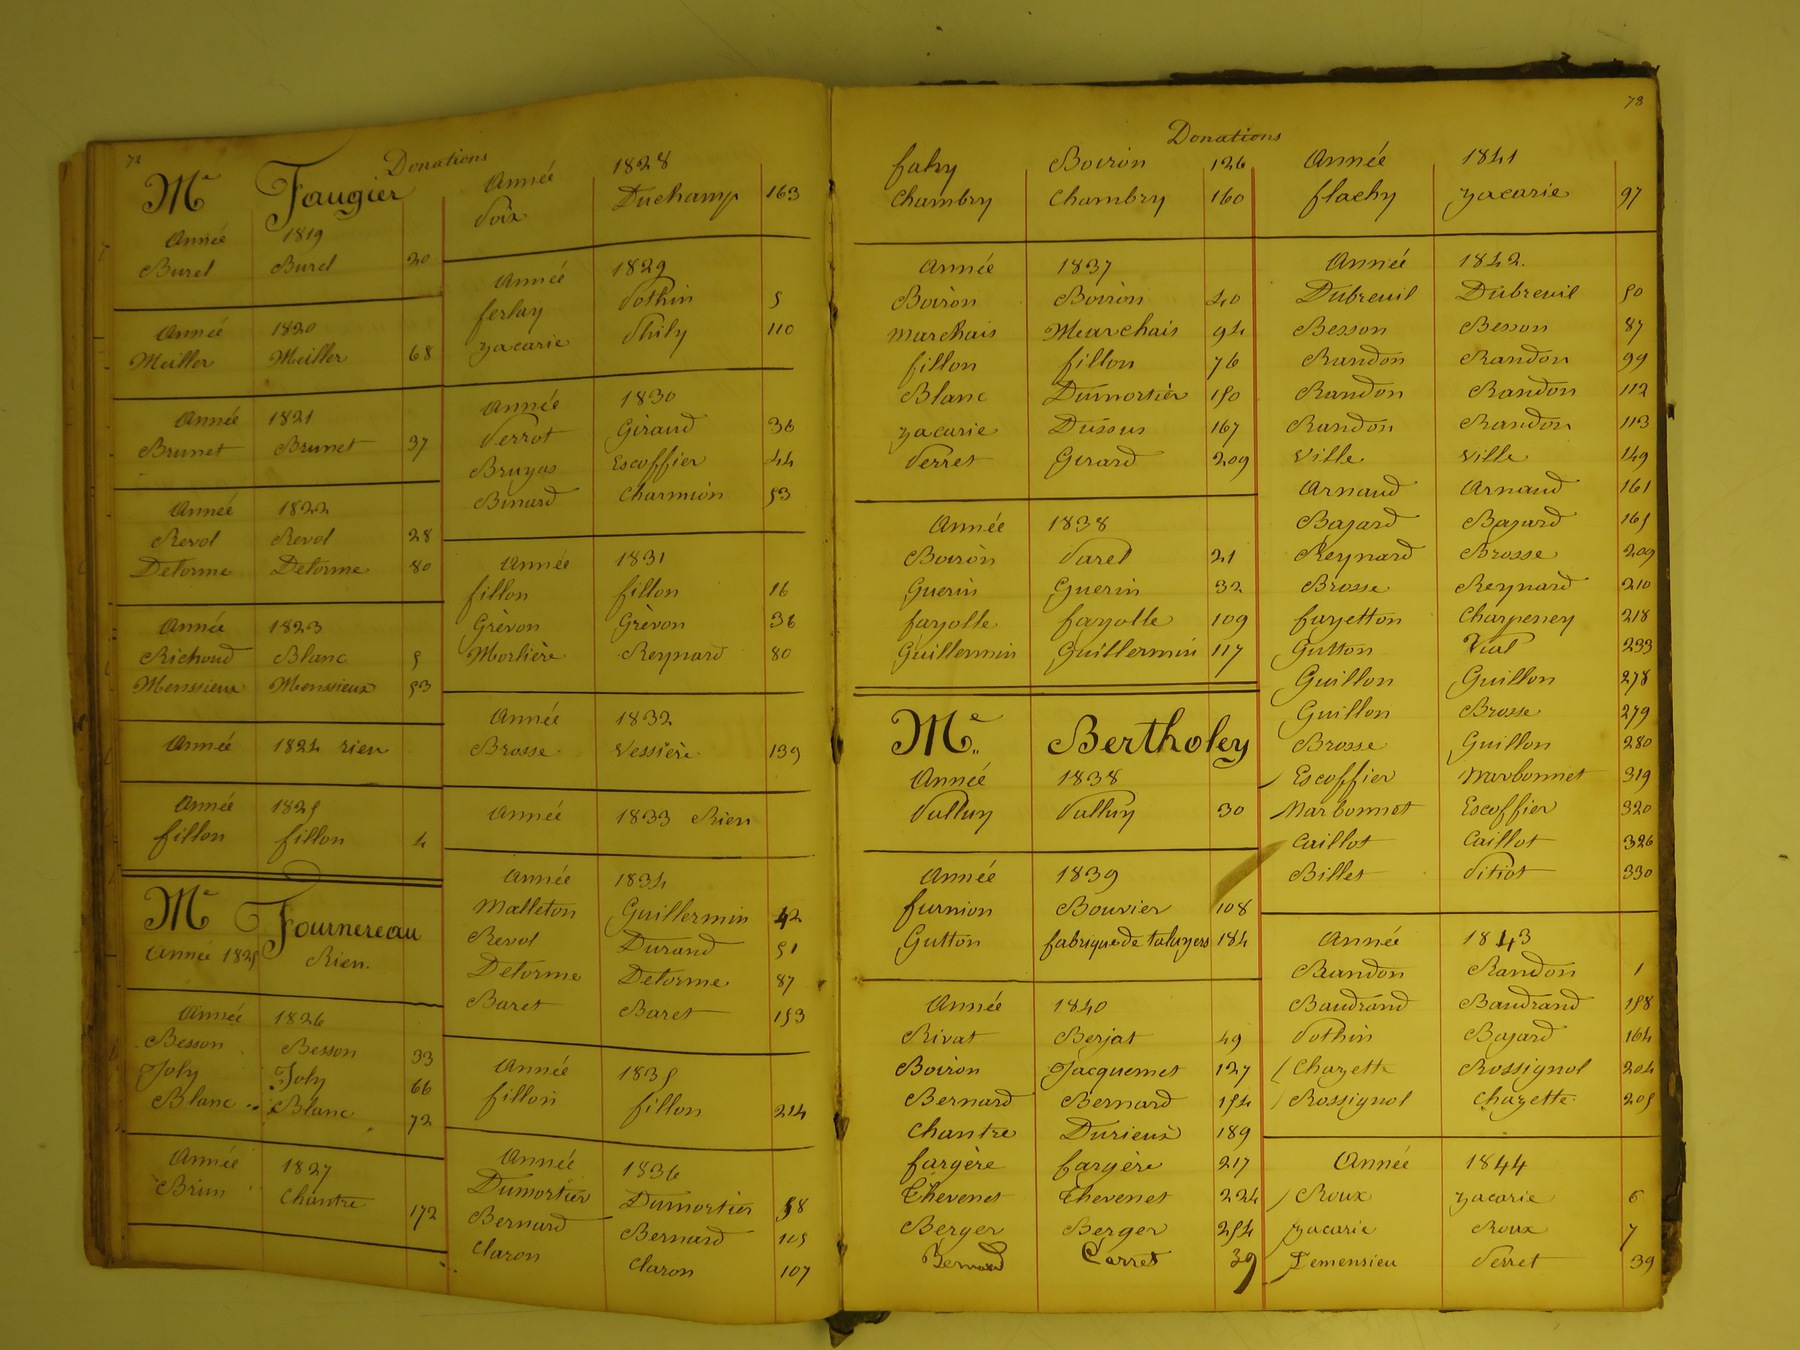 72
Donations
Me Faugier
Année 1819
Burel Burel 20
Année 1820
Meiller Meiller 68
Année 1821
Brunet Brunet 37
Année 1822
Revol Revol 28
Delorme Delorme 80
Année 1823
Richoud Blanc 5
Menssieux Menssieux 53
Année 1824 rien
Année 1825
fillon fillon 4
Me Fournereau
Année 1825 Rien.
Année 1826
Besson Besson 33
Joly Joly 66
Blanc Blanc 72
Année 1827
Brun Chantre 172
Année 1828
Voix Duchamp 163
Année 1829
ferlay Pothin 5
zacarie Phily 110
Année 1830
Perrot Giraud 36
Bruyas Escoffier 44
Binard Charmion 53
Année 1831
fillon fillon 16
Grèvon Grèvon 36
Morlière Reynard 80
Année 1832
Brosse Vessière 139
Année 1833 Rien
Année 1834
Malleton Guillermin 42
Revol Durand 51
Delorme Delorme 87
Baret Baret 153
Année 1835
fillon fillon 214
Année 1836
Dumortier Dumortier 58
Bernard Bernard 105
Claron Claron 107
73
Donations
fahy Boiron 126
Chambry Chambry 160
Année 1837
Boiron Boiron 40
Marchais Marchais 94
fillon fillon 76
Blanc Dumortier 150
zacarie Dussus 167
Perret Girard 209
Année 1838
Boiron Varel 21
Guerin Guerin 32
fayolle fayolle 109
Guillermin Guillermin 117
Me Bertholey
Année 1838
Valluy Valluy 30
Année 1839
furnion Bouvier 108
Gutton fabrique de taluyers 184
Année 1840
Rivat Berjat 49
Boiron Jacquemet 127
Bernard Bernard 154
Chantre Durieux 189
fargère fargère 217
Thevenet Thevenet 224
Berger Berger 254
Bernard Carret 39
Année 1841
flachy zacarie 97
Année 1842.
Dubreuil Dubreuil 50
Besson Besson 87
Randon Randon 99
Randon Randon 112
Randon Randon 113
Ville Ville 149
Arnaud Arnaud 161
Bajard Bajard 165
Reynard Brosse 209
Brosse Reynard 210
fayetton Charpeney 218
Gutton Vial 233
Guillon Guillon 278
Guillon Brosse 279
Brosse Guillon 280
Escoffier Marbonnet 319
Marbonnet Escoffier 320
Caillot Caillot 326
Billet Pitiot 330
Année 1843
Randon Randon 1
Baudrand Baudrand 158
Pothin Bajard 164
Chazette Rossignol 204
Rossignol Chazette 205
Année 1844
Roux zacarie 6
zacarie Roux 7
Jemensieu Perret 39